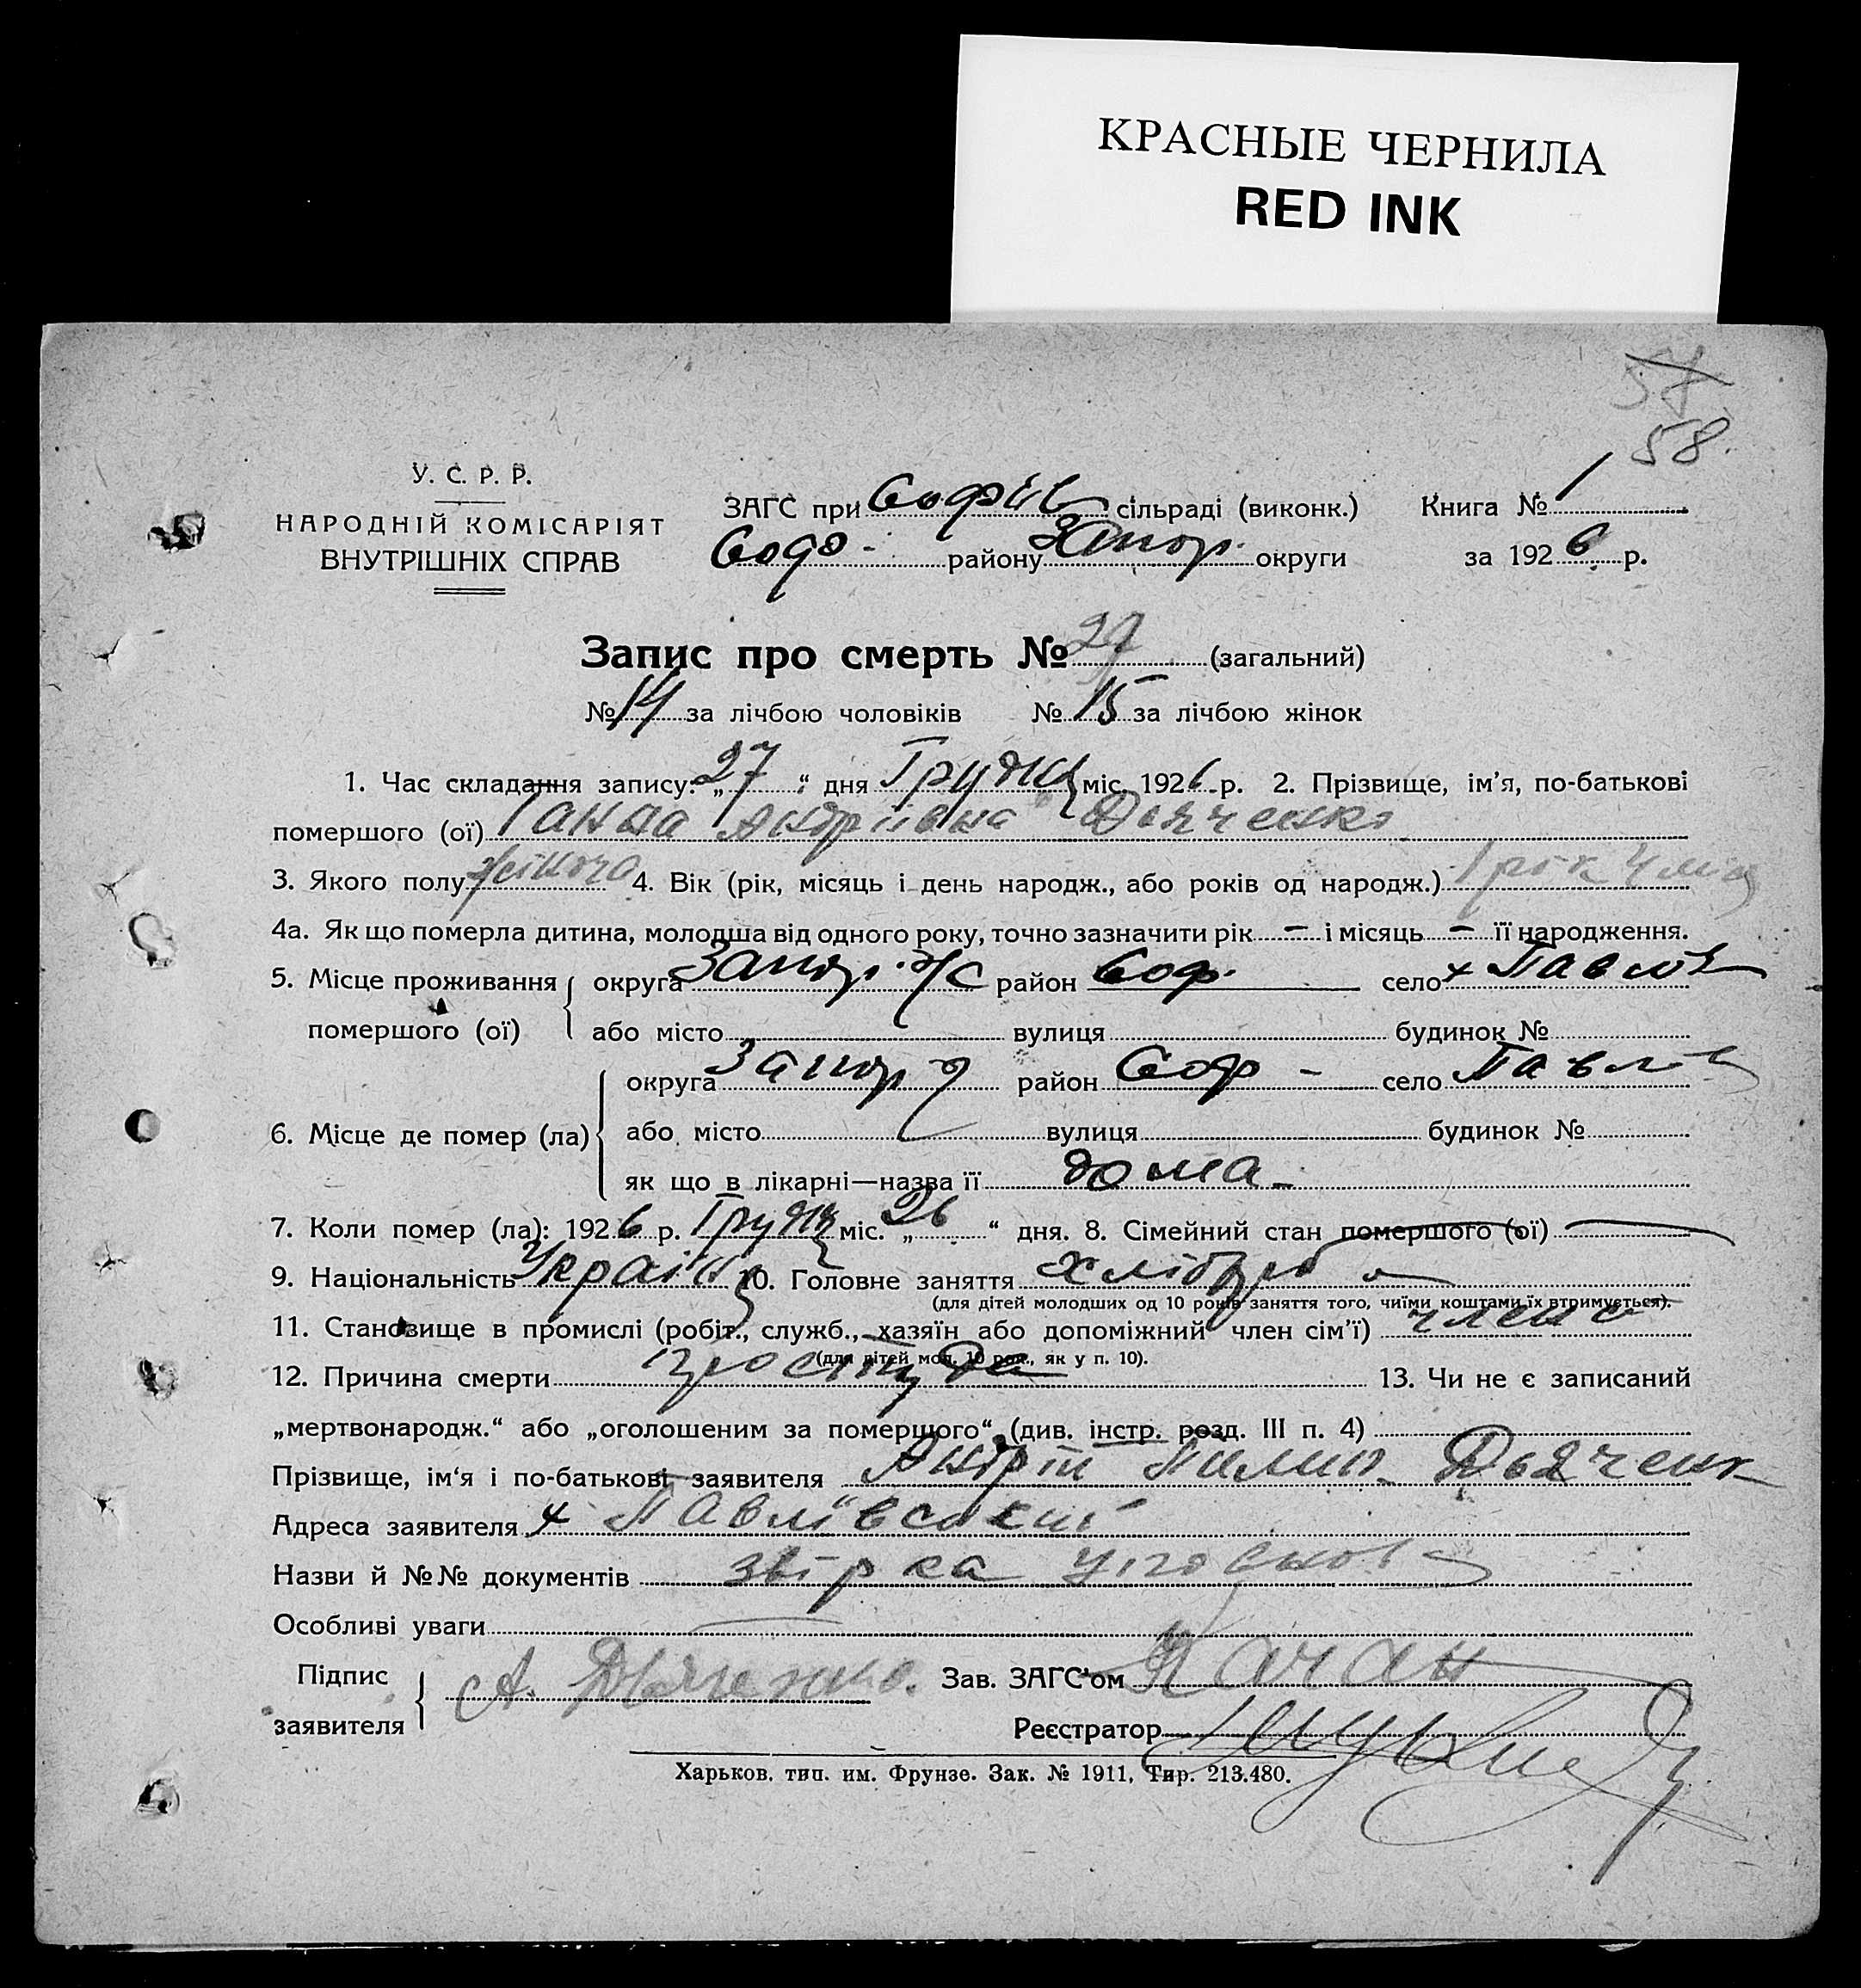 КРАСНЫЕ ЧЕРНИЛА
RED INK
57
58.
У. С. Р. Р.
НАРОДНІЙ КОМІСАРІЯТ
ВНУТРІШНІХ СПРАВ
ЗАГС при Софіїв сільраді (виконк.) Книга № 1
Софо- району Запор. округи за 1926 р.
Запис про смерть № 29 (загальний)
№ 14 за лічбою чоловіків № 15 за лічбою жінок
1. Час складання запису: „27“ дня Грудня міс. 1926 р. 2. Прізвище, ім'я, по-батькові
помершого (ої) Ганна Андріївна Дьяченко
3. Якого полу жіноча 4. Вік (рік, місяць і день народж., або років од народж.) 1 рік 4 міс
4а. Як що померла дитина, молодша від одного року, точно зазначити рік – і місяць – її народження.
5. Місце проживання помершого (ої) округа Запор. район Соф. село х Павлів
або місто вулиця будинок №
6. Місце де помер (ла) округа Запор район Соф – село Павлів
або місто вулиця будинок №
як що в лікарні—назва її дома –
7. Коли помер (ла): 1926 р. Грудня міс. „26“ дня. 8. Сімейний стан помершого (ої) —
9. Національність Україн 10. Головне заняття хлібороб
(для дітей молодших од 10 років заняття того, чиїми коштами їх втримується).
11. Становище в промислі (робіт., служб., хазяїн або допоміжний член сім'ї) член с
(для дітей мол. 10 рок., як у п. 10).
12. Причина смерти простуда 13. Чи не є записаний
„мертвонародж.“ або „оголошеним за помершого“ (див. інстр. розд. III п. 4)
Прізвище, ім'я і по-батькові заявителя Андрій Пилип. Дьяченк
Адреса заявителя х Павлівський
Назви й №№ документів звірка
Особливі уваги
Підпис заявителя А. Дьяченко. Зав. ЗАГС'ом Качан
Реєстратор
Харьков. тип. им. Фрунзе. Зак. № 1911, Тир. 213.480.